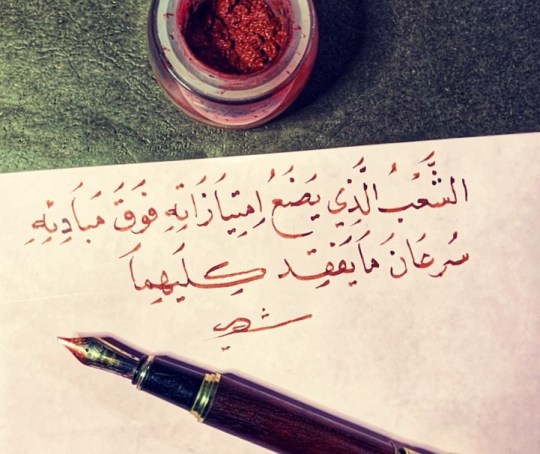 الشَّعْبُ الَّذِي يَضَعُ اِمتِيَازَاتِهِ فَوَقَ مَبَادِئِهِ
سُرعَانَ مَا يَفَقِد كِلَيهِمَا